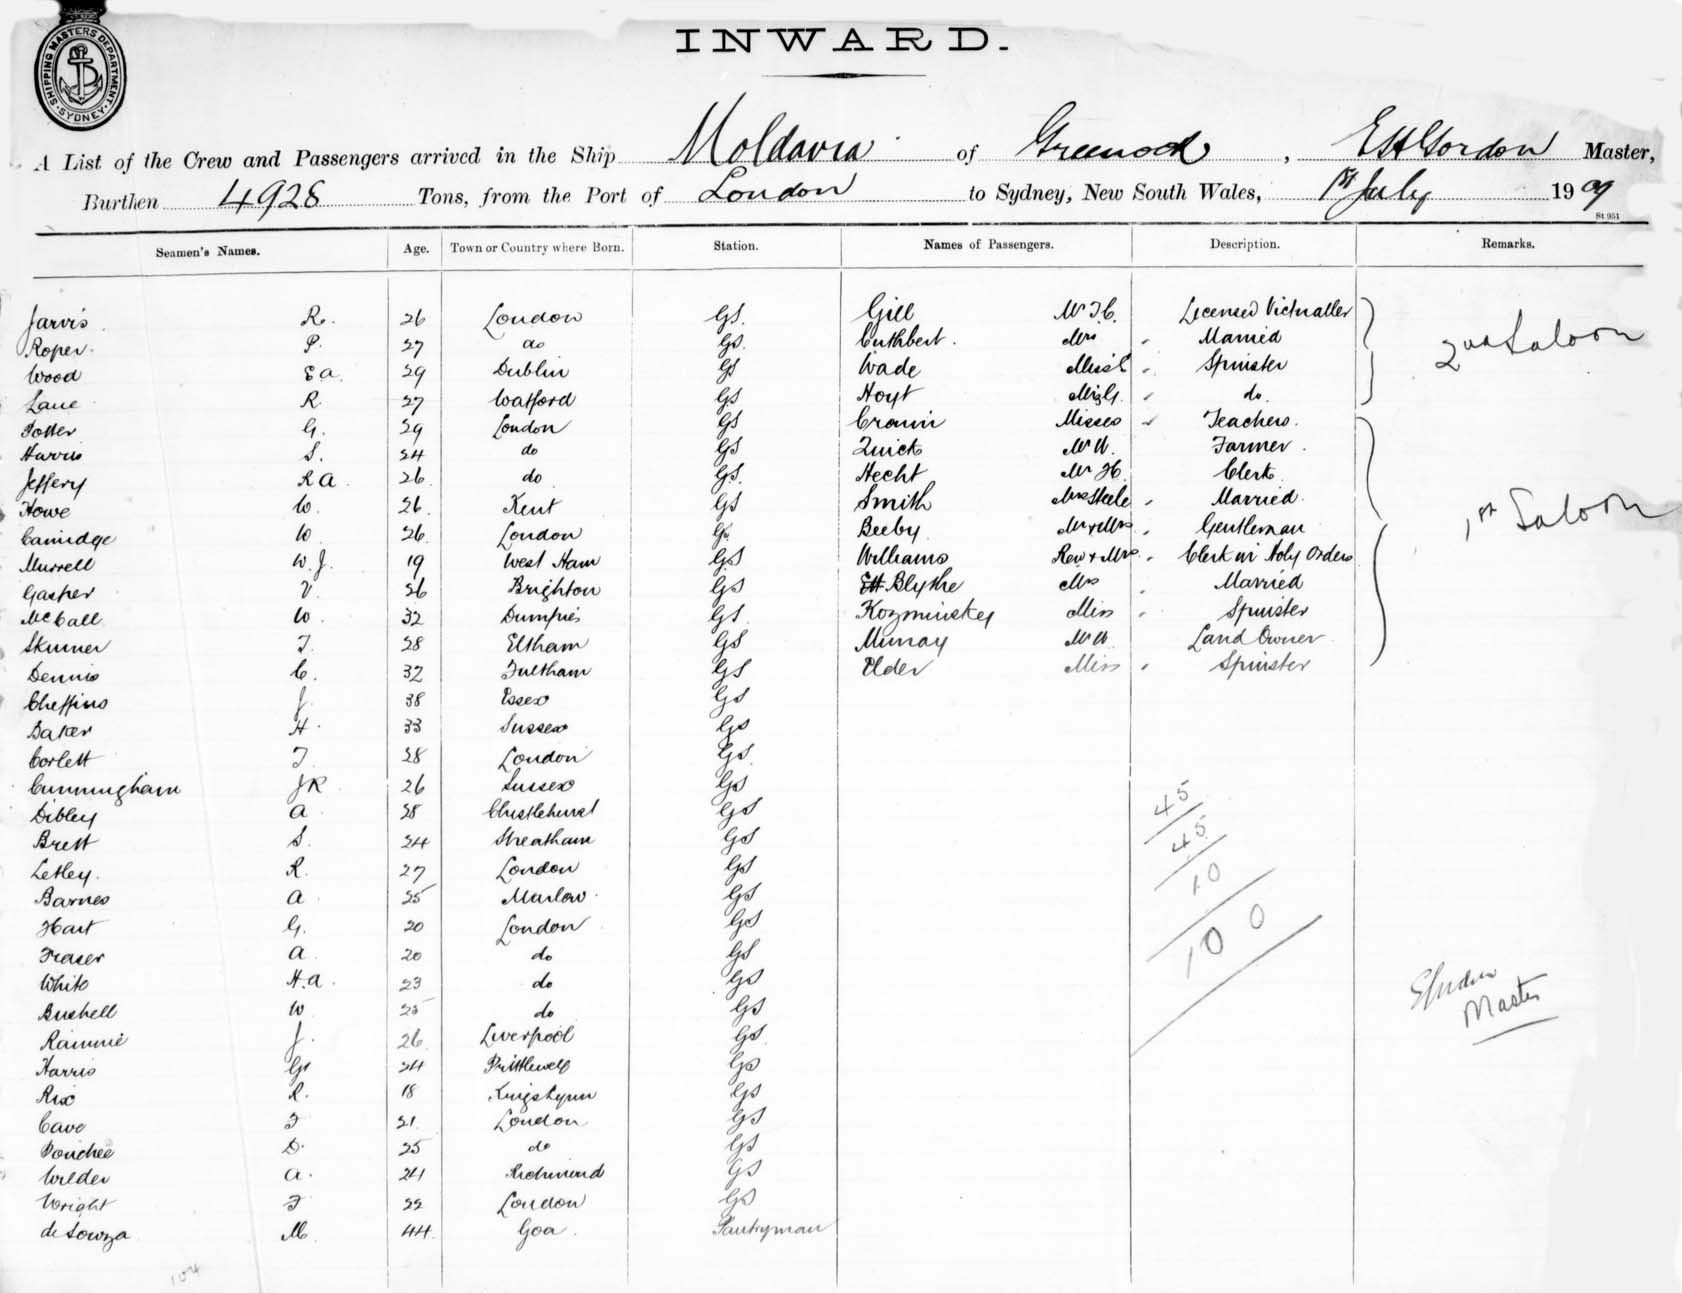 INWARD.
SHIPPING MASTERS DEPARTMENT. SYDNEY.
A List of the Crew and Passengers arrived in the Ship Moldavia of Greenock, E H Gordon Master,
Burthen 4928 Tons, from the Port of London to Sydney, New South Wales, 1st July 1909
St 951
Seamen's Names. Age. Town or Country where Born. Station. Names of Passengers. Description. Remarks.
Jarvis R. 26 London GS. Gill Mr T.C. Licensed Victualler
Roper P. 27 do GS. Cuthbert Mrs Married 2nd Saloon
Wood E A. 29 Dublin GS Wade Miss E Spinster
Lane R. 27 Watford GS Hoyt Miss G. do.
Potter G. 29 London GS Cronin Misses Teachers.
Harris S. 24 do GS Quick Mr W. Farmer.
Jeffery R A. 26 do GS. Hecht Mr H. Clerk
Howe W. 26 Kent GS Smith Mrs Steele Married. 1st Saloon
Camidge W. 26 London GS Beeby Mr & Mrs Gentleman
Murrell W. J. 19 West Ham GS Williams Rev & Mrs Clerk in Holy Orders
Gasper V. 26 Brighton GS Blythe Mrs Married
McCall W. 32 Dumfries GS Kozminskey Miss Spinster
Skinner T. 28 Eltham GS Murray Mr W. Land Owner
Dennis C. 32 Fultham GS Elder Miss Spinster
Cheffins J. 38 Essex GS
Baker H. 33 Sussex GS
Corlett T. 28 London GS.
Cunningham J R 26 Sussex GS
Dibley A. 28 Chistlehurst GS 45
Brett S. 24 Streatham GS 45
Letley. R. 27 London GS 10
Barnes A. 25 Marlow GS
Hart G. 20 London GS 100
Fraser A. 20 do GS
White H.A. 23 do GS
Bushell W 25 do GS Master
Rammie J. 26 Liverpool GS.
Harris G 24 Prittlewell GS
Rix R. 18 Kings Lynn GS
Cave F 21 London GS
Pouchee D. 25 do GS
Wilder A. 24 Richmond GS
Wright F 22 London GS
de Sowza M. 44 Goa. Pantryman
104